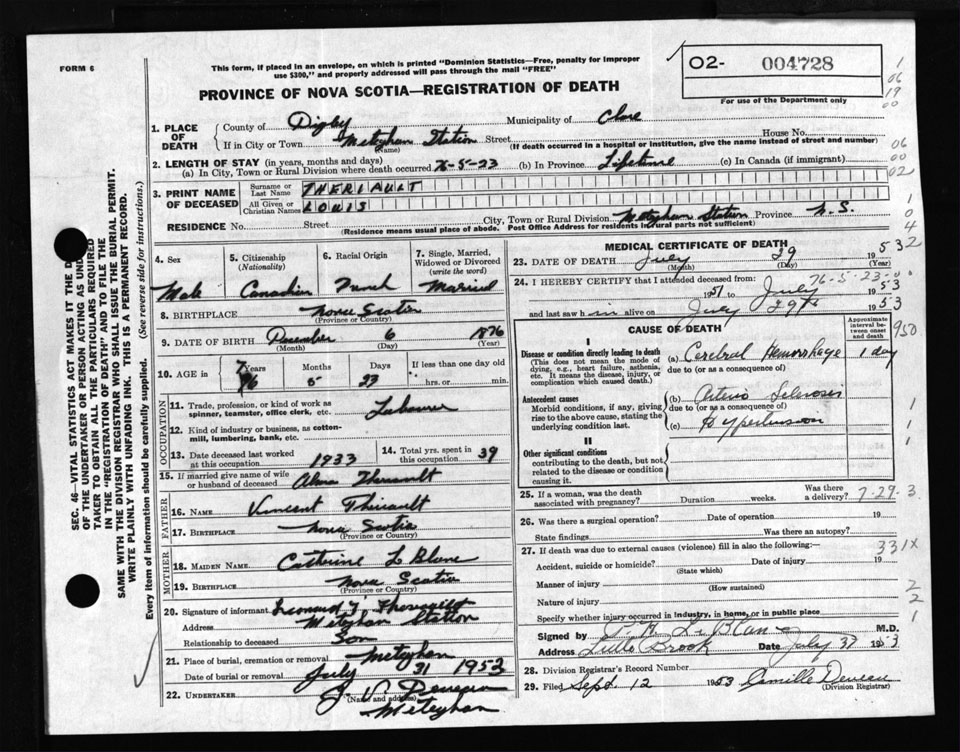 FORM 6
This form, if placed in an envelope, on which is printed "Dominion Statistics—Free, penalty for improper
use $300," and properly addressed will pass through the mail "FREE"
PROVINCE OF NOVA SCOTIA—REGISTRATION OF DEATH
O2- 004728
For use of the Department only
1. PLACE OF DEATH
County of Digby Municipality of Clare
If in City or Town Meteghan Station Street House No.
(Name) (If death occurred in a hospital or institution, give the name instead of street and number)
2. LENGTH OF STAY (in years, months and days)
(a) In City, Town or Rural Division where death occurred 76-5-23 (b) In Province Lifetime (c) In Canada (if immigrant)
3. PRINT NAME OF DECEASED
Surname or Last Name THERIAULT
All Given or Christian Names LOUIS
RESIDENCE No. Street City, Town or Rural Division Meteghan Station Province N.S.
(Residence means usual place of abode. Post Office Address for residents in rural parts not sufficient)
4. Sex
Male
5. Citizenship (Nationality)
Canadian
6. Racial Origin
French
7. Single, Married, Widowed or Divorced (write the word)
Married
8. BIRTHPLACE Nova Scotia
(Province or Country)
9. DATE OF BIRTH December 6 1876
(Month) (Day) (Year)
10. AGE in Years Months Days If less than one day old
76 5 23 hrs. or min.
OCCUPATION
11. Trade, profession, or kind of work as spinner, teamster, office clerk, etc. Labourer
12. Kind of industry or business, as cotton-mill, lumbering, bank, etc.
13. Date deceased last worked at this occupation 1933
14. Total yrs. spent in this occupation 39
15. If married give name of wife or husband of deceased Theriault
FATHER
16. NAME Vincent Theriault
17. BIRTHPLACE Nova Scotia
(Province or Country)
MOTHER
18. MAIDEN NAME Catherine LeBlanc
19. BIRTHPLACE Nova Scotia
(Province or Country)
20. Signature of informant
Address Meteghan Station
Relationship to deceased Son
21. Place of burial, cremation or removal Meteghan
Date of burial or removal July 31 1953
22. UNDERTAKER
(Name and address)
Meteghan
MEDICAL CERTIFICATE OF DEATH
23. DATE OF DEATH July 29 53
(Month) (Day) (Year)
24. I HEREBY CERTIFY that I attended deceased from
1951 to July 1953
and last saw him alive on July 29th 1953
CAUSE OF DEATH
Approximate interval between onset and death
I
Disease or condition directly leading to death
(This does not mean the mode of dying, e.g., heart failure, asthenia, etc. It means the disease, injury, or complication which caused death.)
(a) Cerebral Hemorrhage 1 day
due to (or as a consequence of)
Antecedent causes
Morbid conditions, if any, giving rise to the above cause, stating the underlying condition last.
(b) Arterio Sclerosis
due to (or as a consequence of)
(c) Hypertension
II
Other significant conditions
contributing to the death, but not related to the disease or condition causing it.
25. If a woman, was the death associated with pregnancy? Duration weeks. Was there a delivery?
26. Was there a surgical operation? Date of operation 19
State findings Was there an autopsy?
27. If death was due to external causes (violence) fill in also the following:—
Accident, suicide or homicide? Date of injury 19
(State which)
Manner of injury
(How sustained)
Nature of injury
Specify whether injury occurred in industry, in home, or in public place
Signed by LeBlanc M.D.
Address Little Brook Date July 1953
28. Division Registrar's Record Number
29. Filed Sept. 12 1953 Camille Deveau
(Division Registrar)
76-5-23-
950
7-29-3
331X
SEC. 46—VITAL STATISTICS ACT MAKES IT THE
OF THE UNDERTAKER OR PERSON ACTING AS UND
TAKER TO OBTAIN ALL THE PARTICULARS REQUIRED
IN THE "REGISTRATION OF DEATH" AND TO FILE THE
SAME WITH THE DIVISION REGISTRAR WHO SHALL ISSUE THE BURIAL PERMIT.
WRITE PLAINLY WITH UNFADING INK. THIS IS A PERMANENT RECORD.
Every item of information should be carefully supplied. (See reverse side for instructions.)